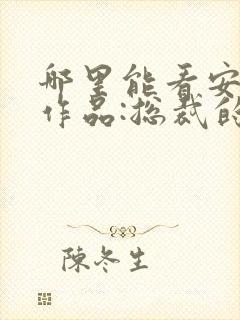 哪里能看安
作品:总裁的
陈冬生